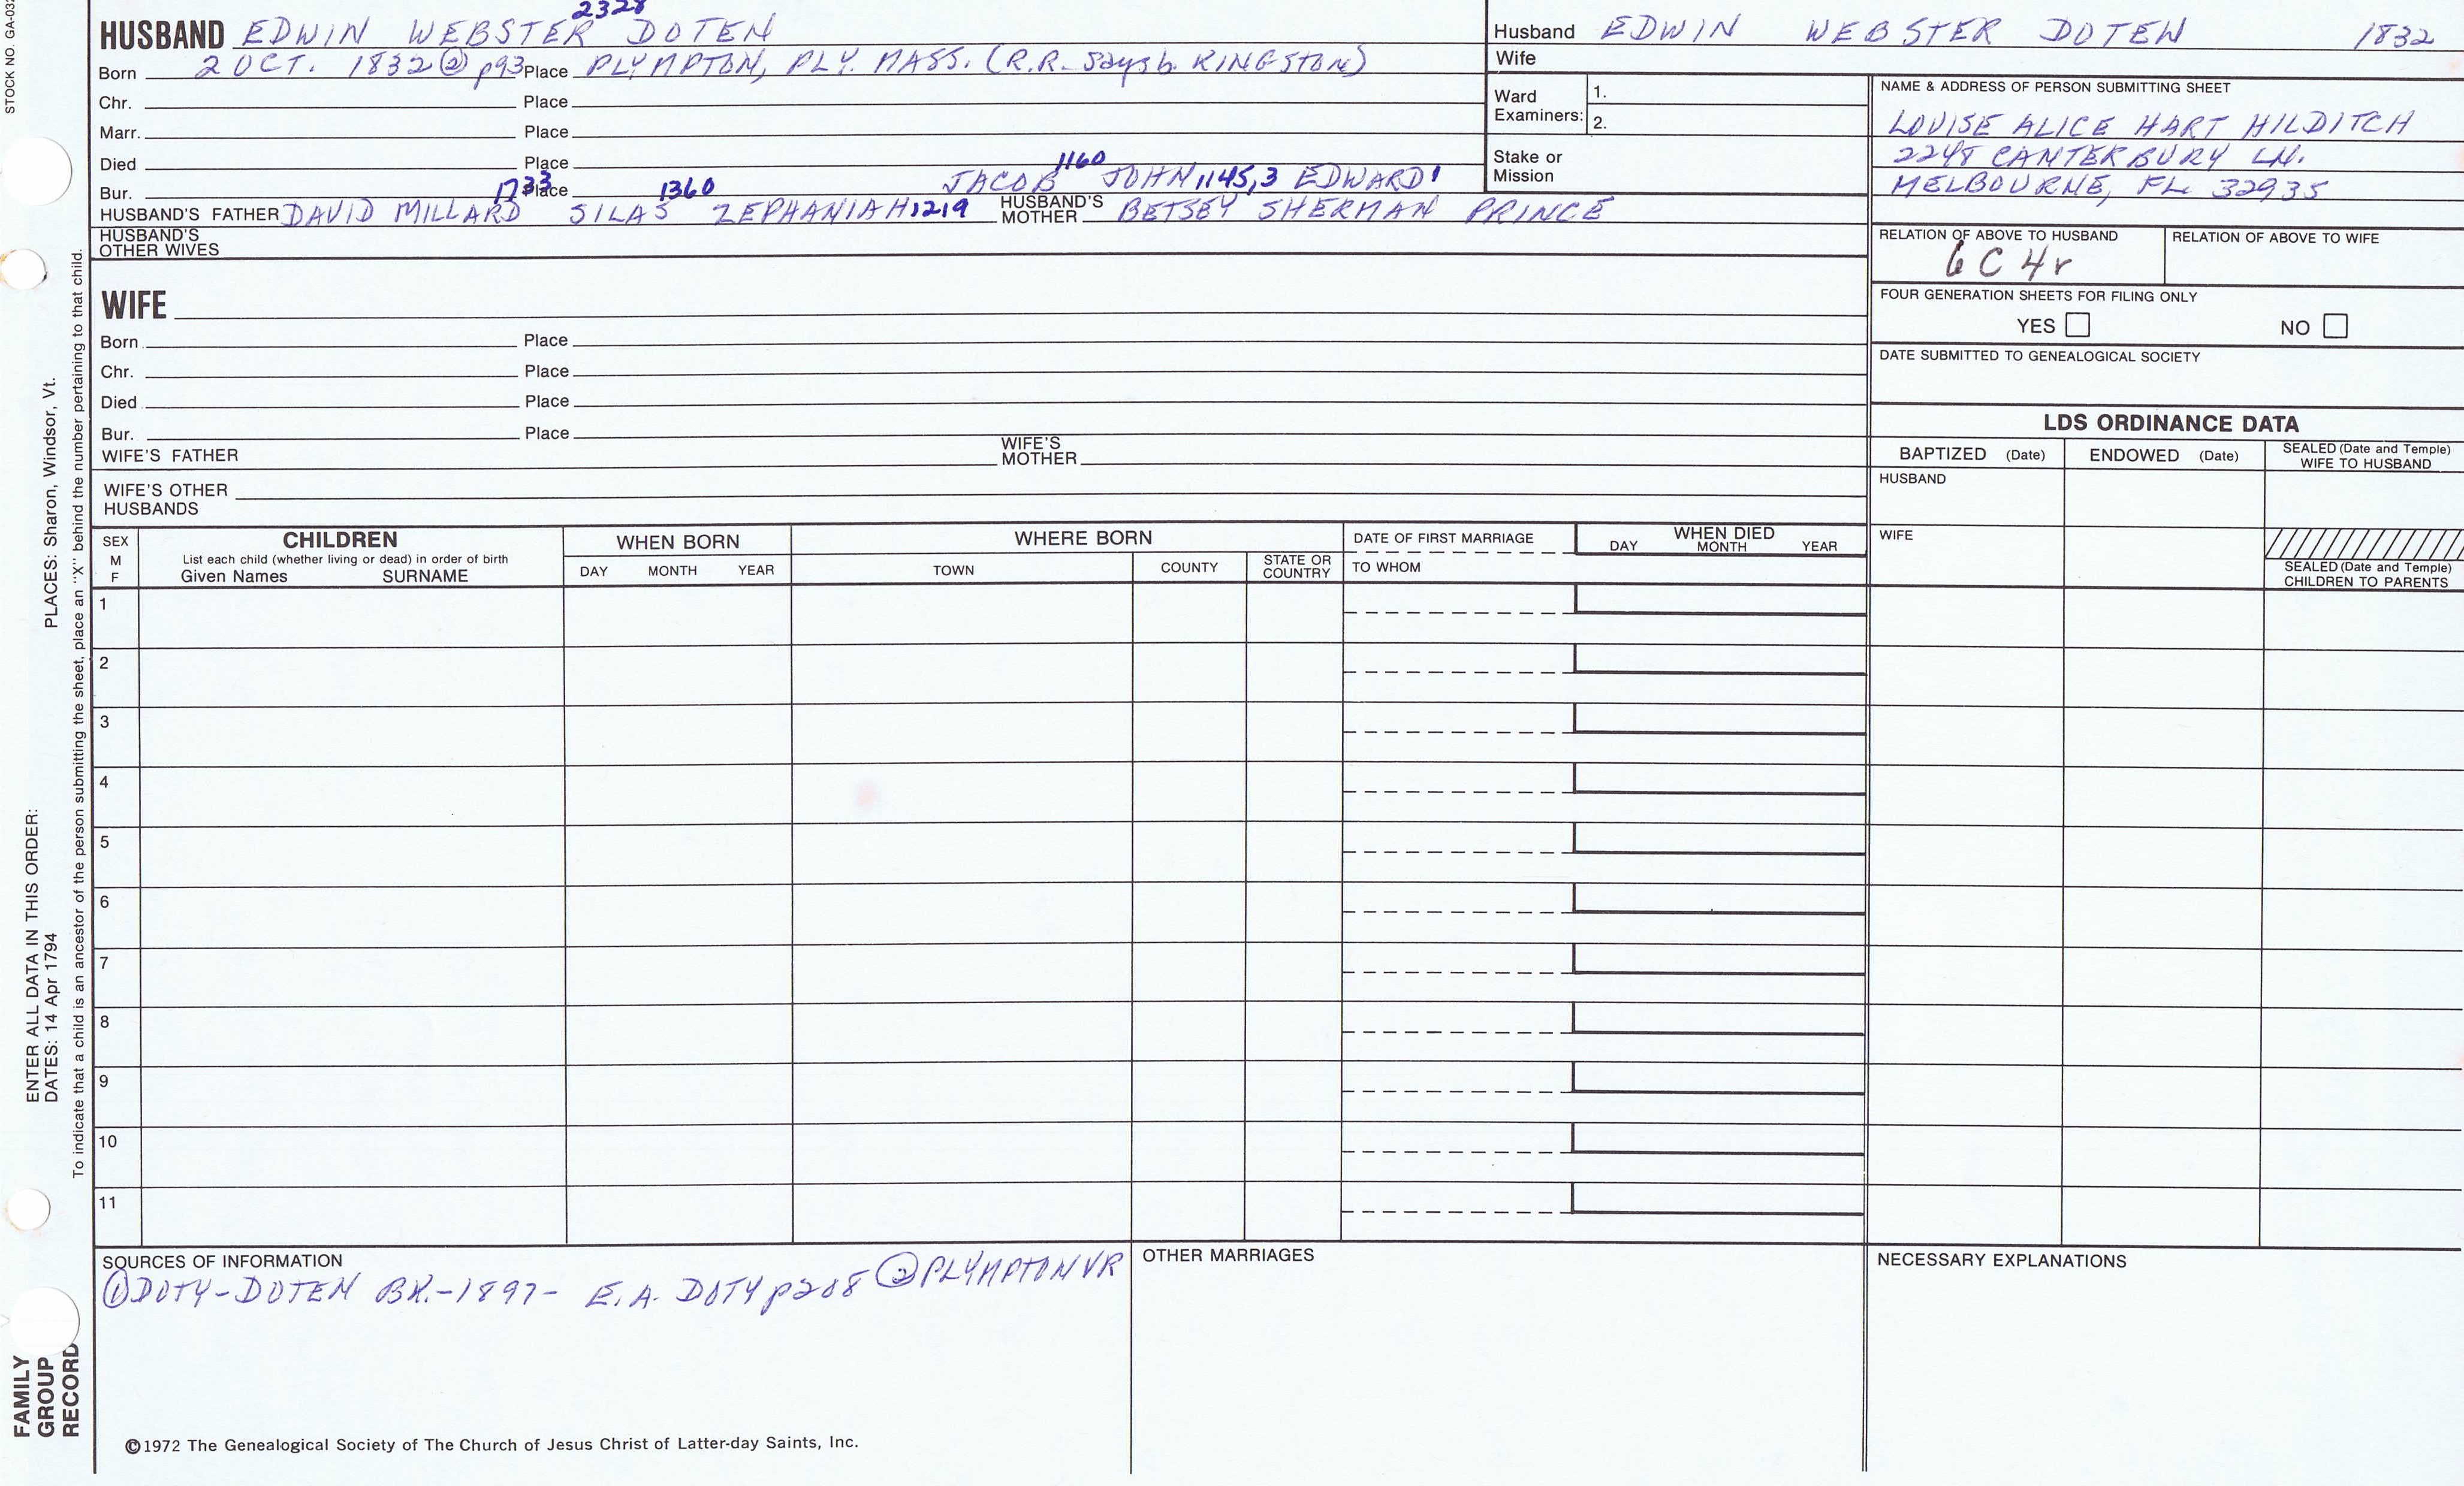 STOCK NO. GA-032
2328
HUSBAND EDWIN WEBSTER DOTEN
Born 2 OCT. 1832 ② p93 Place PLYMPTON, PLY. MASS. (R.R. says b. KINGSTON)
Chr. Place
Marr. Place
Died Place
1160
Bur. Place JACOB JOHN 1145,3 EDWARD 1
1733 1360
HUSBAND'S FATHER DAVID MILLARD SILAS ZEPHANIAH 1219 HUSBAND'S MOTHER BETSEY SHERMAN PRINCE
HUSBAND'S OTHER WIVES
WIFE
Born Place
Chr. Place
Died Place
Bur. Place
WIFE'S FATHER WIFE'S MOTHER
WIFE'S OTHER HUSBANDS
Husband EDWIN WEBSTER DOTEN 1832
Wife
Ward Examiners: 1.
2.
Stake or Mission
NAME & ADDRESS OF PERSON SUBMITTING SHEET
LOUISE ALICE HART HILDITCH
2248 CANTERBURY LN.
MELBOURNE, FL 32935
RELATION OF ABOVE TO HUSBAND RELATION OF ABOVE TO WIFE
6 C 4r
FOUR GENERATION SHEETS FOR FILING ONLY
YES NO
DATE SUBMITTED TO GENEALOGICAL SOCIETY
LDS ORDINANCE DATA
BAPTIZED (Date) ENDOWED (Date) SEALED (Date and Temple) WIFE TO HUSBAND
HUSBAND
WIFE
SEALED (Date and Temple) CHILDREN TO PARENTS
SEX M F
CHILDREN
List each child (whether living or dead) in order of birth
Given Names SURNAME
WHEN BORN
DAY MONTH YEAR
WHERE BORN
TOWN COUNTY STATE OR COUNTRY
DATE OF FIRST MARRIAGE
TO WHOM
WHEN DIED
DAY MONTH YEAR
1
2
3
4
5
6
7
8
9
10
11
SOURCES OF INFORMATION
① DOTY-DOTEN BK.-1897- E.A. DOTY p208 ② PLYMPTON VR
OTHER MARRIAGES
NECESSARY EXPLANATIONS
©1972 The Genealogical Society of The Church of Jesus Christ of Latter-day Saints, Inc.
ENTER ALL DATA IN THIS ORDER:
DATES: 14 Apr 1794 PLACES: Sharon, Windsor, Vt.
To indicate that a child is an ancestor of the person submitting the sheet, place an "X" behind the number pertaining to that child.
FAMILY
GROUP
RECORD